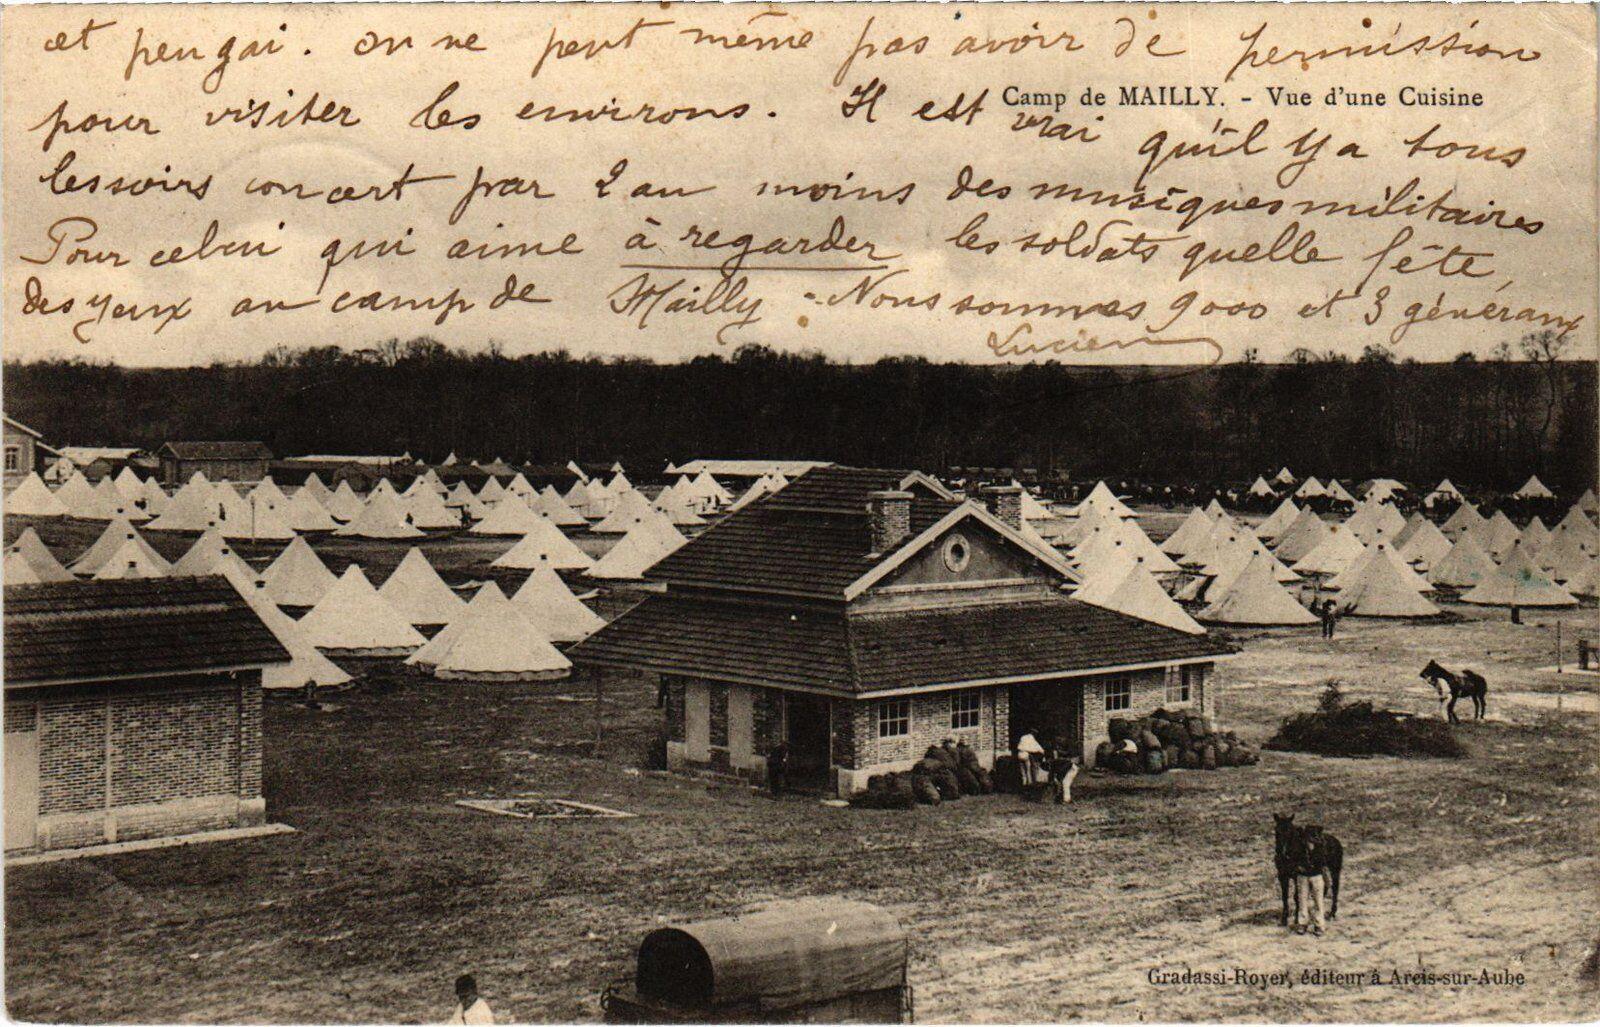 et peu gai. on ne peut même pas avoir de permission
Camp de MAILLY. - Vue d'une Cuisine
pour visiter les environs. Il est vrai qu'il y a tous
les soirs concert par 2 au moins des musiques militaires
Pour celui qui aime à regarder les soldats quelle fête
des yeux au camp de Mailly - Nous sommes 9000 et 3 généraux
Lucien
Gradassi-Royer, éditeur à Arcis-sur-Aube